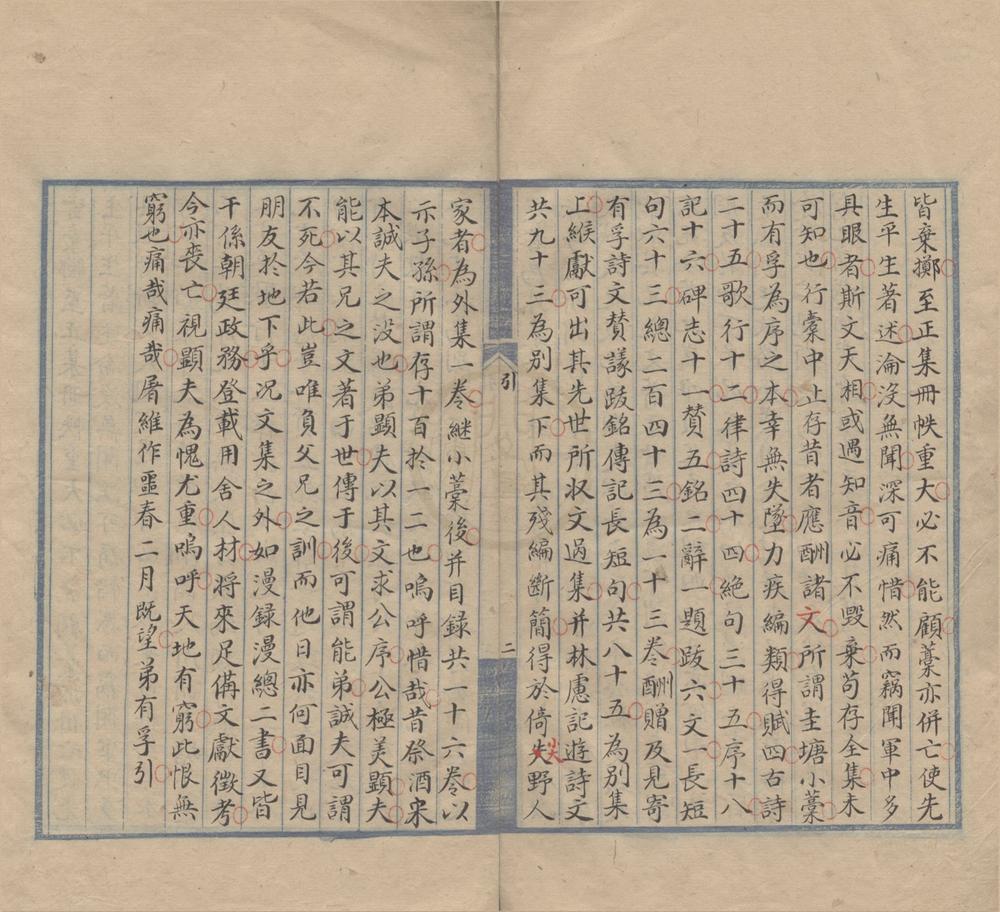 皆棄擲至正集冊帙重大必不能顧藁亦併亡使先
生平生著述淪沒無聞深可痛惜然而竊聞軍中多
具眼者斯文天相或遇知音必不毀棄苟存全集未
可知也行橐中止存昔者應酬諸文所謂圭塘小藁
而有孚為序之本幸無失墜力疾編類得賦四古詩
二十五歌行十二律詩四十四絕句三十五序十八
記十六碑志十一贊五銘二辭一題跋六文一長短
句六十三總二百四十三為一十三卷酬贈及見寄
有孚詩文贊議跋銘傳記長短句共八十五為別集
上緱獻可出其先世所収文過集并林慮記遊詩文
共九十三為別集下而其殘編斷簡得於倚失野人
引
二
家者為外集一卷継小藁後并目録共一十六卷以
示子孫所謂存十百於一二也嗚呼惜哉昔祭酒宋
本誠夫之沒也弟顯夫以其文求公序公極美顯夫
能以其兄之文著于世傳于後可謂能弟誠夫可謂
不死今若此豈唯負父兄之訓而他日亦何面目見
朋友於地下乎况文集之外如漫録漫總二書又皆
干係朝廷政務登載用舍人材將來足偹文獻徵考
今亦喪亡視顯夫為愧尤重嗚呼天地有窮此恨無
窮也痛哉痛哉屠維作噩春二月既望弟有孚引